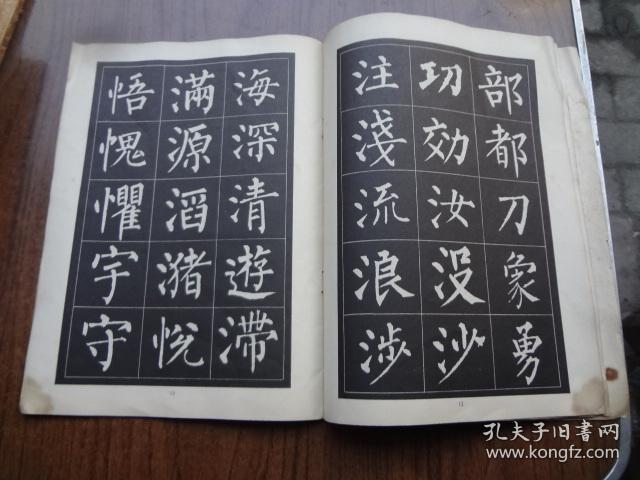 部都刀象勇
功効汝没沙
注淺流浪涉
海深清遊滯
滿源滔潴悦
悟愧懼宇守
孔夫子旧书网
www.kongfz.com